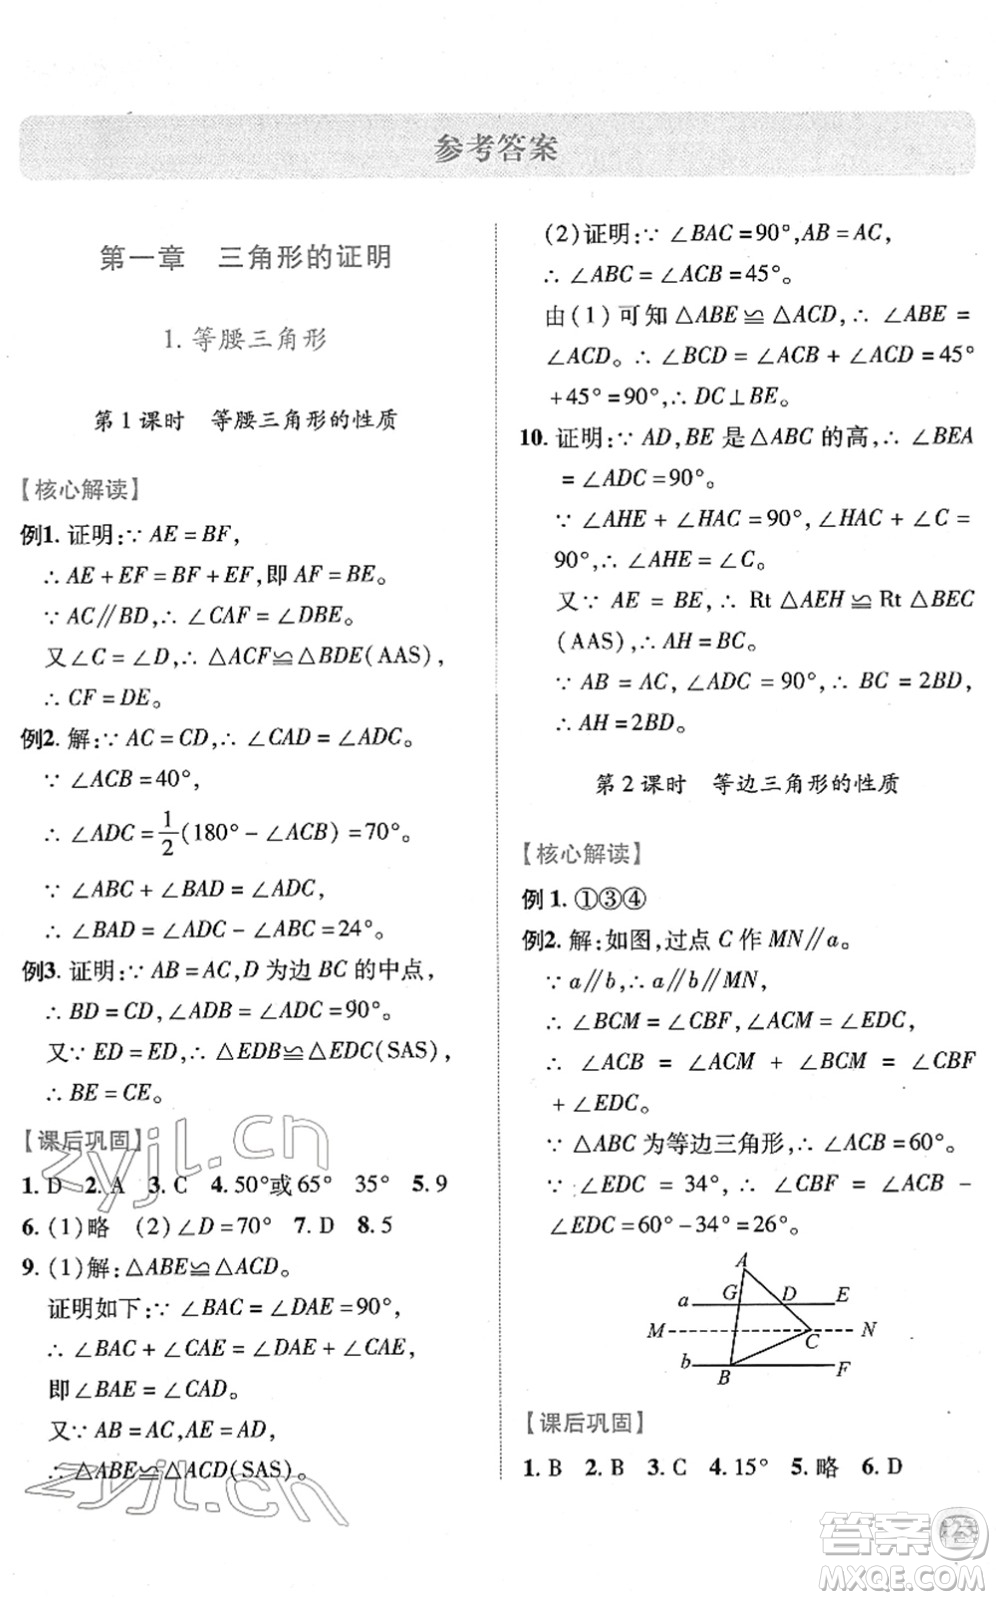 参考答案
第一章 三角形的证明
1.等腰三角形
第1课时 等腰三角形的性质
【核心解读】
例1.证明:∵AE=BF,
∴AE+EF=BF+EF,即AF=BE。
∵AC∥BD,∴∠CAF=∠DBE。
又∠C=∠D,∴△ACF≌△BDE(AAS),
∴CF=DE。
例2.解:∵AC=CD,∴∠CAD=∠ADC。
∵∠ACB=40°,
∴∠ADC=1/2(180°-∠ACB)=70°。
∵∠ABC+∠BAD=∠ADC,
∴∠BAD=∠ADC-∠ABC=24°。
例3.证明:∵AB=AC,D为边BC的中点,
∴BD=CD,∠ADB=∠ADC=90°。
又∵ED=ED,∴△EDB≌△EDC(SAS),
∴BE=CE。
【课后巩固】
1.D 2.A 3.C 4.50°或65° 35° 5.9
6.(1)略 (2)∠D=70° 7.D 8.5
9.(1)解:△ABE≌△ACD。
证明如下:∵∠BAC=∠DAE=90°,
∴∠BAC+∠CAE=∠DAE+∠CAE,
即∠BAE=∠CAD。
又∵AB=AC,AE=AD,
∴△ABE≌△ACD(SAS)。
(2)证明:∵∠BAC=90°,AB=AC,
∴∠ABC=∠ACB=45°。
由(1)可知△ABE≌△ACD,∴∠ABE=
∠ACD。∴∠BCD=∠ACB+∠ACD=45°
+45°=90°,∴DC⊥BE。
10.证明:∵AD,BE是△ABC的高,∴∠BEA
=∠ADC=90°。
∵∠AHE+∠HAC=90°,∠HAC+∠C=
90°,∴∠AHE=∠C。
又∵AE=BE,∴Rt△AEH≌Rt△BEC
(AAS),∴AH=BC。
∵AB=AC,∠ADC=90°,∴BC=2BD,
∴AH=2BD。
第2课时 等边三角形的性质
【核心解读】
例1.①③④
例2.解:如图,过点C作MN∥a。
∵a∥b,∴a∥b∥MN,
∴∠BCM=∠CBF,∠ACM=∠EDC,
∴∠ACB=∠ACM+∠BCM=∠CBF
+∠EDC。
∵△ABC为等边三角形,∴∠ACB=60°。
∵∠EDC=34°,∴∠CBF=∠ACB-
∠EDC=60°-34°=26°。
A
a G D E
M C N
b B F
【课后巩固】
1.B 2.B 3.C 4.15° 5.略 6.D
zyjl.cn
zyjl.cn
答案
MXQE.COM